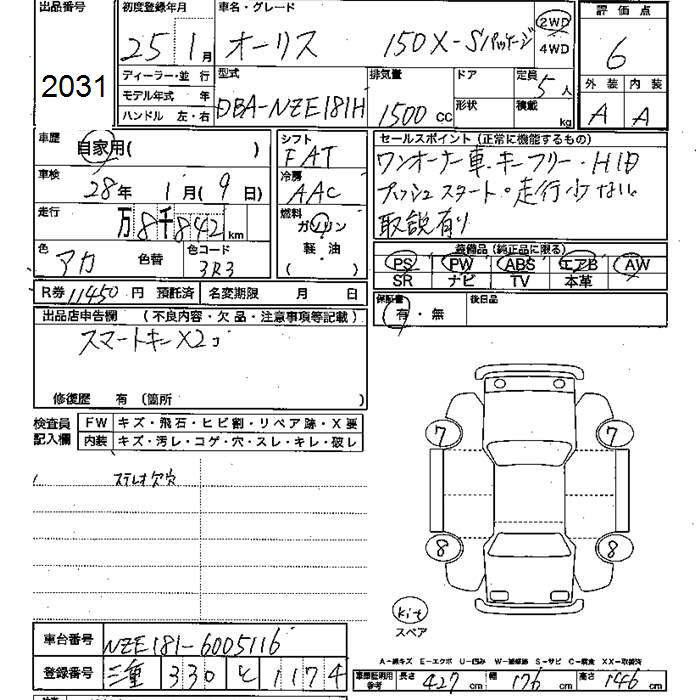 出品番号 初度登録年月 車名・グレード 評価点
2031 25 1月 オーリス 150X-Sパッケージ 2WD 4WD 6
ディーラー・並行 型式 排気量 ドア 定員 5人 外装 内装
モデル年式 年 DBA-NZE181H 1500CC 形状 積載 kg A A
ハンドル 左・右
車歴 自家用( ) シフト FAT セールスポイント(正常に機能するもの)
車検 28年 1月(9日) 冷房 AAC ワンオーナー車、キーフリー・HID
走行 万8千842km 燃料 ガソリン プッシュスタート・走行少ない
色 アカ 色替 色コード 3R3 軽・油 ( ) 取説有り
装備品(純正品に限る)
PS PW ABS エアB AW
SR ナビ TV 本革
R券 11450円 預託済 名変期限 月 日 保証書 有・無 後日品
出品店申告欄 (不良内容・欠品・注意事項等記載)
スマートキーX2コ
修復歴 有(箇所
検査員記入欄 FW キズ・飛石・ヒビ割・リペア跡・X要
内装 キズ・汚レ・コゲ・穴・スレ・キレ・破レ
7 7
ステレオ欠穴
8 8
kit
スペア
車台番号 NZE181-6005116
A-線キズ E-エクボ U-凹み W-補修跡 S-サビ C-腐食 XX-取替済
登録番号 三重 330 1174 車庫証明用参考 長さ 427cm 幅 176cm 高さ 146cm